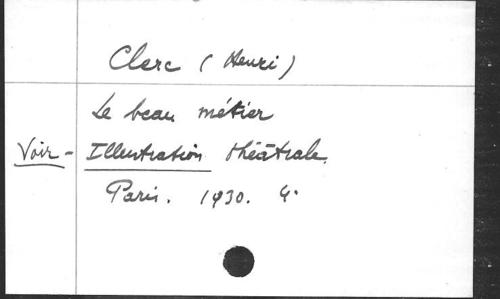 Clerc (Henri)
Le beau métier
Voir - Illustration théâtrale.
Paris. 1930. 4°